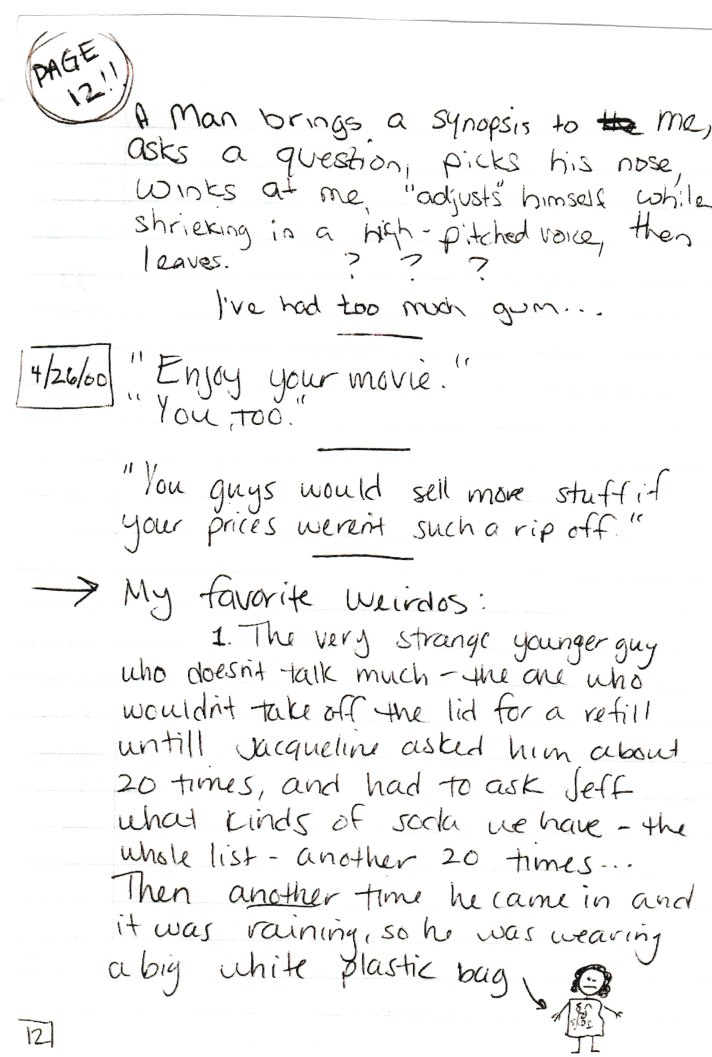 PAGE
12!!
A Man brings a synopsis to me,
asks a question, picks his nose,
winks at me, "adjusts" himself while
shrieking in a high-pitched voice, then
leaves. ? ? ?
I've had too much gum...
4/26/00
"Enjoy your movie."
"You, too."
"You guys would sell more stuff if
your prices weren't such a rip off."
→ My favorite weirdos:
1. The very strange younger guy
who doesn't talk much - the one who
wouldn't take off the lid for a refill
untill Jacqueline asked him about
20 times, and had to ask Jeff
what kinds of soda we have - the
whole list - another 20 times...
Then another time he came in and
it was raining, so he was wearing
a big white plastic bag
12